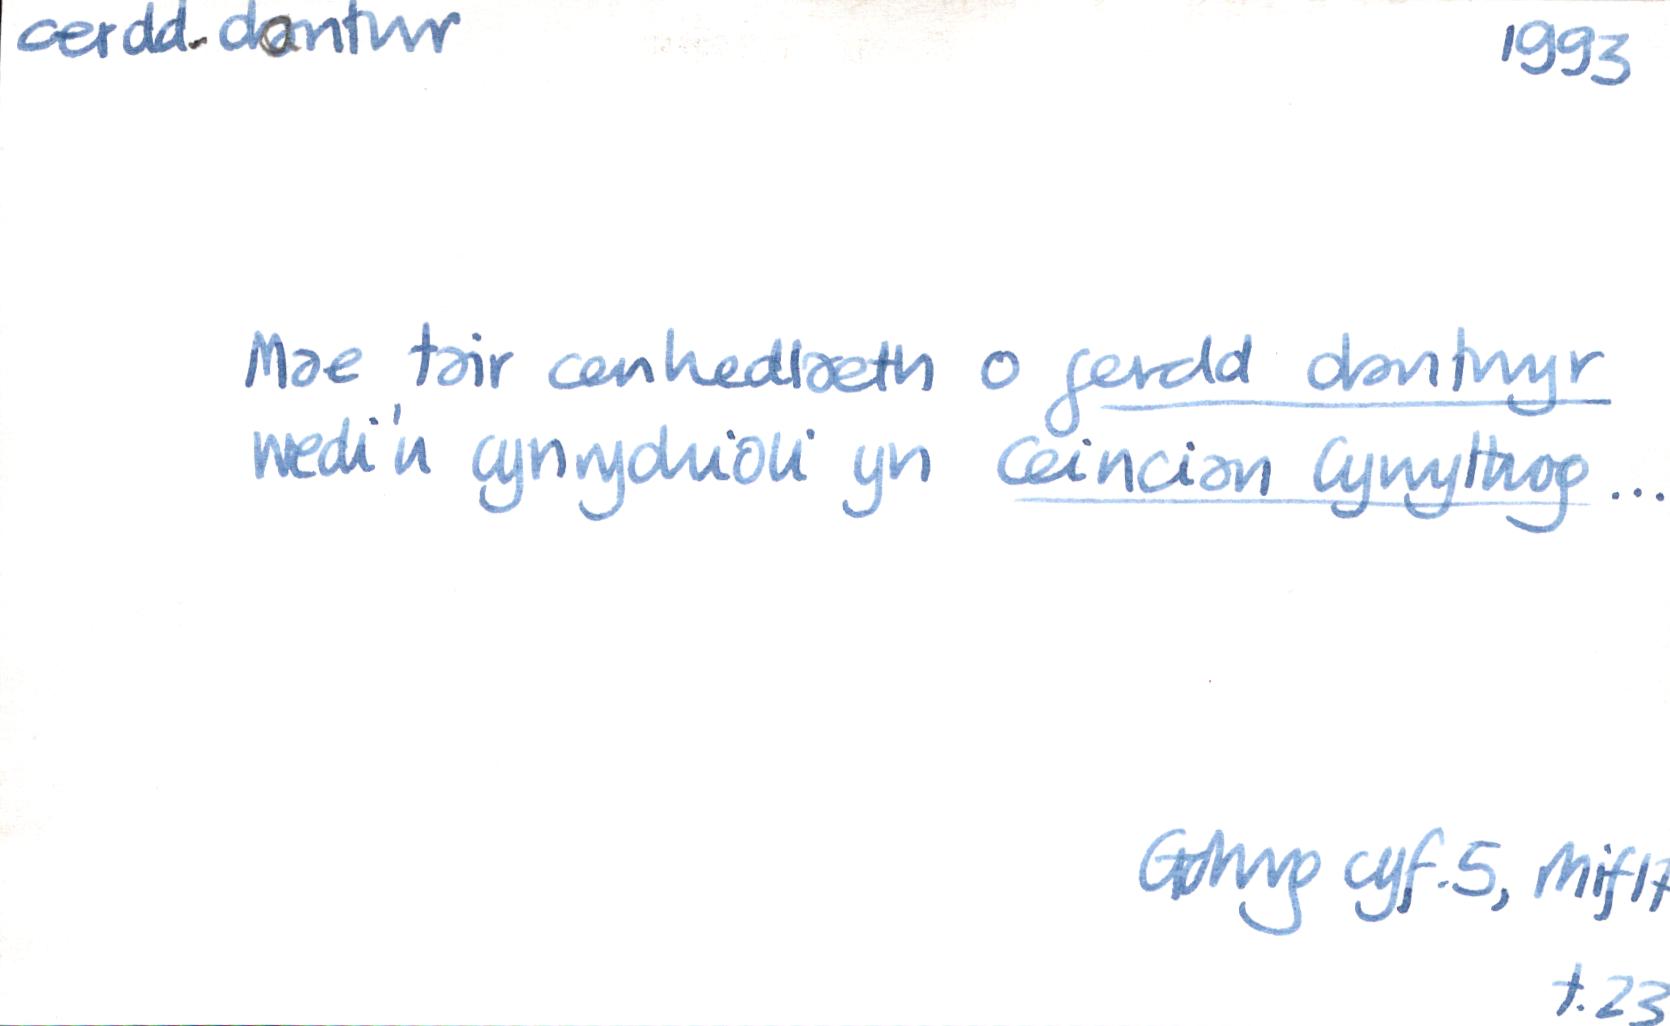 cerdd-dantwr
1993
Mae tair cenhedlaeth o gerdd dantwyr
wedi'u cynnydrioli yn Ceincian Cynyrthog...
Golwg cyf.5, rhif 17
t.23